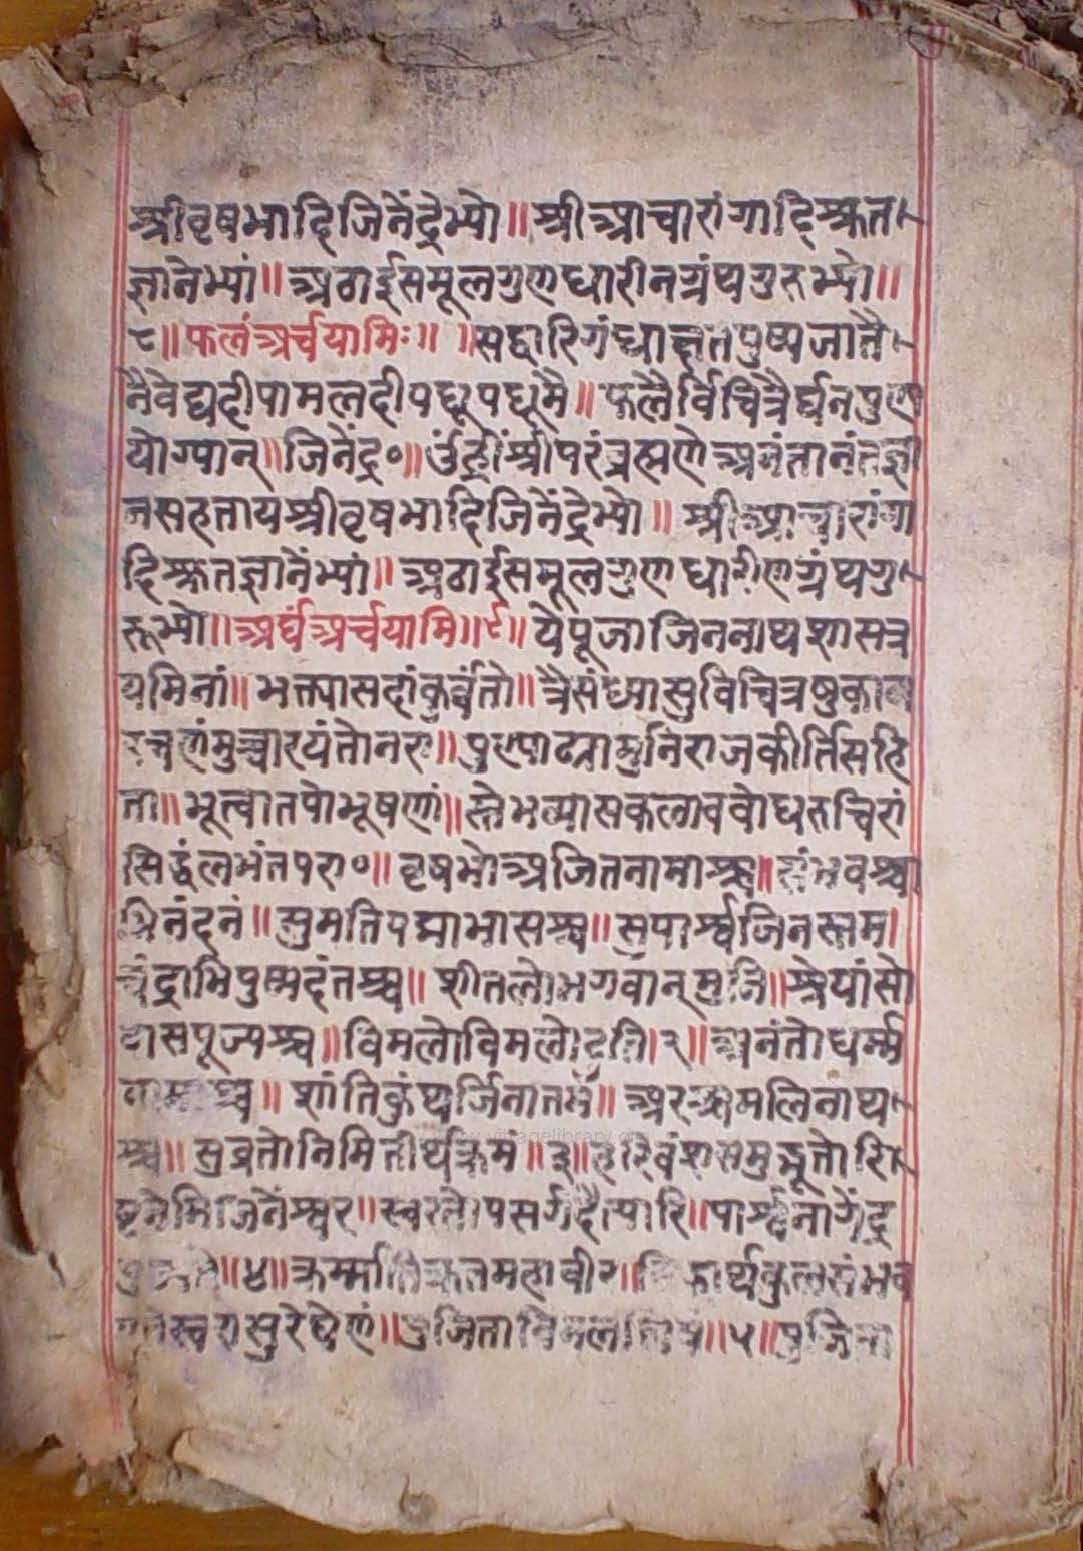 श्रीवृषभादिजिनेंद्रेभ्यो॥श्रीआचारांगादिश्रुत-
ज्ञानेभ्यां॥अठाईसमूलगुणधारीनग्रंथगुरुभ्यो॥
८॥फलंअर्चयामिः॥ ॥सद्वारिगंधाक्षतपुष्पजातै-
नैवेद्यदीपामलदीपधूपधूमै॥फलैर्विचित्रैर्घनपुण्य
योग्पान्॥जिनेंद्र०॥उंह्रींश्रीपरंब्रह्मणेअनंतानंतज्ञा
नसहतायश्रीवृषभादिजिनेंद्रेभ्यो॥ श्रीआचारांगा
दिश्रुतज्ञानेंभ्यां॥अठाईसमूलगुणधारीणग्रंथगु-
रुभ्यो॥अर्घंअर्चयामि॥९॥येपूजाजिननाथशासत्र
यमिनां॥भक्त्यासदांकुर्वंतो॥त्रैसंध्यासुविचित्र
मुच्चारयंतोनरा॥पुण्याढ्यामुनिराजकीर्तिसहि
ता॥भूत्वातपोभूषणां॥स्तेभव्यासकलावबोधरुचिरां
सिद्धंलभंतपरा०॥वृषभोअजितनामाश्च॥संभवश्चा
भिनंदनं॥सुमतिपद्माभासश्च॥सुपार्श्वजिनस्तम।
चंद्राभिपुष्पदंतश्च॥शीतलोभगवान्मुनि॥श्रेयांसो
वासपूज्यश्च॥विमलोविमलोदति।२॥अनंतोधर्म्म
नामाश्च॥ शांतिकुंथर्जिनोतमं॥अरश्चमलिनाथ-
श्च॥सुव्रतोनिमितीर्थक्रमं॥३॥हरिवंशसमुद्भूतोरि-
ष्टनेमिजिनेश्वर॥पसर्गदैत्यारि॥पार्श्वनागेंद्र
॥४॥क्रर्म्मांतिक्रतमहावीर॥सिद्धार्थकुलसंभव
॥पुजिताविमल॥५॥पुजिता